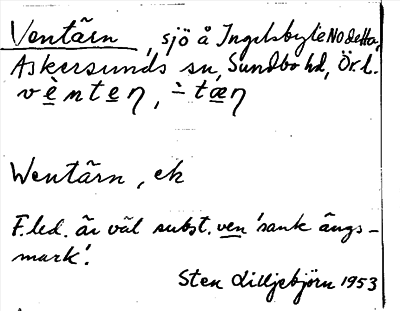 Ventärn, sjö å Ingelsbyle NO detta,
Askersunds sn, Sundbo hd, Ör. l.
vènten, -̀ tæn
Wentärn, ek
F.led. är väl subst. ven 'sank ängs-
mark'.
Sten Lilljebjörn 1953